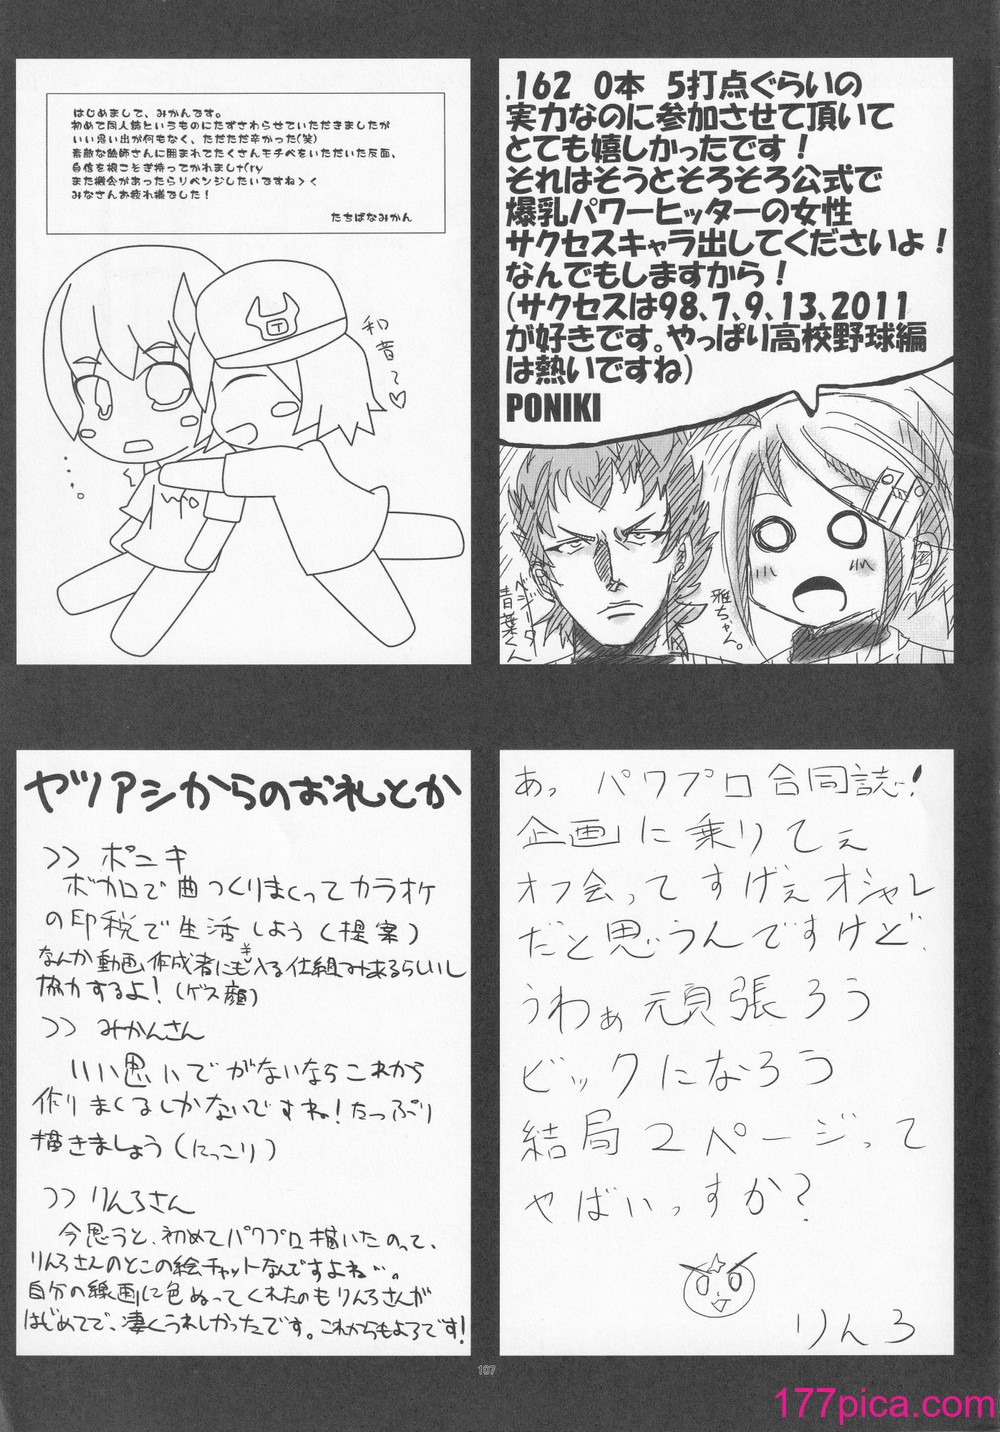 はじめまして、みかんです。
初めて同人誌というものにたずさわらせていただきましたが
いい思い出が何もなく、ただただ辛かった(笑)
素敵な絵師さんに囲まれてたくさんモチベをいただいた反面、
自信を根こそぎ持ってかれまし†(ry
また機会があったらリベンジしたいですね＞く
みなさんお疲れ様でした！
たちばなみかん
和
音
〜
♡
.162　0本　5打点ぐらいの
実力なのに参加させて頂いて
とても嬉しかったです！
それはそうとそろそろ公式で
爆乳パワーヒッターの女性
サクセスキャラ出してくださいよ！
なんでもしますから！
(サクセスは98、7、9、13、2011
が好きです。やっぱり高校野球編
は熱いですね)
PONIKI
ベジータ
青葉くん
雅ちゃん。
ヤツアシからのお礼とか
>> ポニキ
ボカロで曲つくりまくってカラオケ
の印税で生活しよう(提案)
なんか動画作成者にも¥入る仕組み来るらしいし
協力するよ！(ゲス顔)
>> みかんさん
いい思いでがないならこれから
作りまくるしかないですね！たっぷり
描きましょう(にっこり)
>> りんろさん
今思うと、初めてパワプロ描いたのって、
りんろさんのとこの絵チャットなんですよね…。
自分の線画に色ぬってくれたのもりんろさんが
はじめてで、凄くうれしかったです。これからもよろです！
あっ パワプロ合同誌！
企画に乗りてぇ
オフ会ってすげぇオシャレ
だと思うんですけど、
うわぁ頑張ろう
ビックになろう
結局2ページって
やばいっすか？
りんろ
107
177pica.com